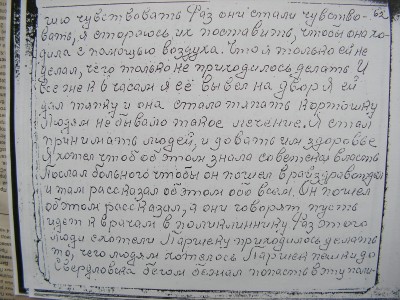 чию чувствовать Раз они стали чувство- 62
вать, я стараюсь, их поставить, чтобы она хо-
дила с помощью воздуха. Что я только ей не
делал, чего только не приходилось делать. И
все же к часам я её вывел на двор я ей
дал тяпку и она стала тяпать картошку
Людям не бывало такое лечение. Я стал
принимать людей, и довать им здоровье
Я хотел чтоб об этом знала советская власть
Послал больного чтобы он пошел в райздравотдел
и там рассказал об этом обо всем. Он пошел
об этом рассказал, а они говорят, пусть
идет к врачам в поликлиннику Раз этого
люди схотели Паршеку приходилось делать
то, чего людям хотелось Паршек пешком до
Свердловска бегом бежал попасть в эту поли-